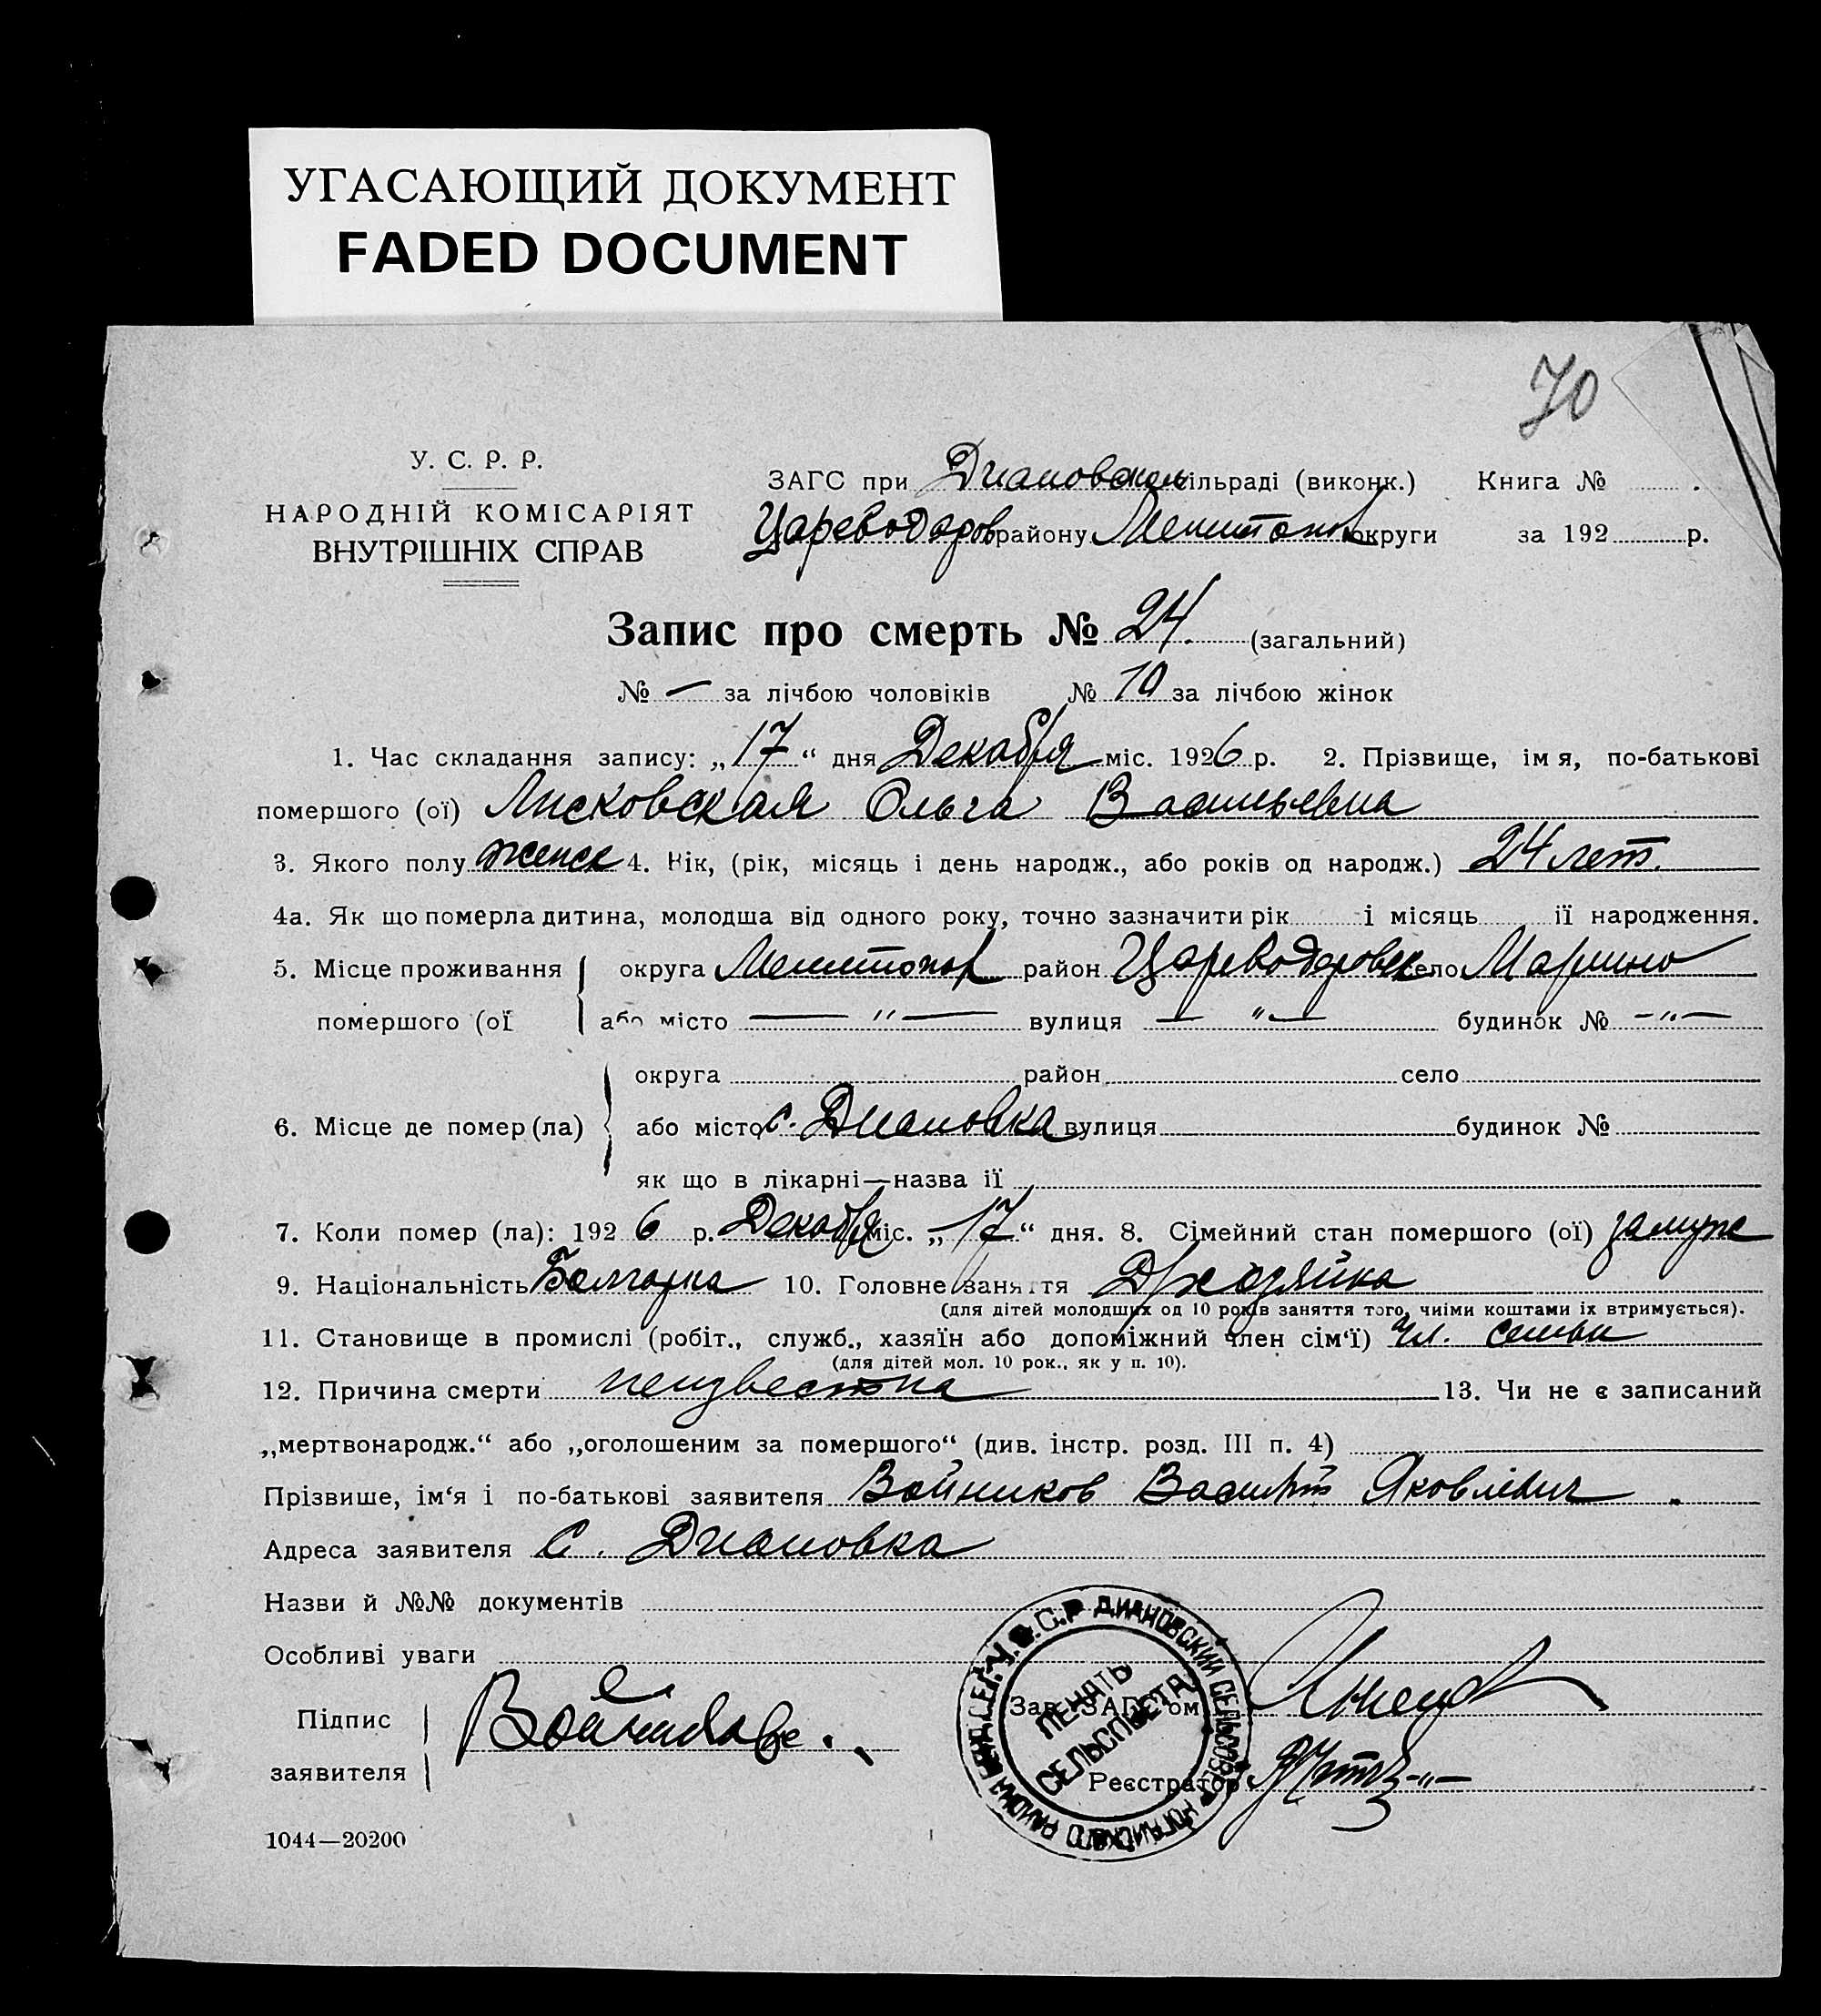 УГАСАЮЩИЙ ДОКУМЕНТ
FADED DOCUMENT
70
У. С. Р. Р.
НАРОДНІЙ КОМІСАРІЯТ
ВНУТРІШНІХ СПРАВ
ЗАГС при Диановском сільраді (виконк.) Книга №
Цареводаров району Мелитопол округи за 192 р.
Запис про смерть № 24. (загальний)
№ — за лічбою чоловіків № 10 за лічбою жінок
1. Час складання запису: „17“ дня Декабря міс. 1926 р. 2. Прізвище, імя, по-батькові
помершого (ої) Лисковская Ольга Васильевна
3. Якого полу женск 4. Вік, (рік, місяць і день народж., або років од народж.) 24 лет.
4а. Як що померла дитина, молодша від одного року, точно зазначити рік і місяць її народження.
5. Місце проживання округа Мелитопол район Цареводаровск село Марино
помершого (ої або місто — " — вулиця — " — будинок № — " —
округа район село
6. Місце де помер (ла) або місто с. Диановка вулиця будинок №
як що в лікарні—назва її
7. Коли помер (ла): 1926 р. Декабря міс. „17“ дня. 8. Сімейний стан помершого (ої) замуж
9. Національність Болгарка 10. Головне заняття Д/хозяйка
(для дітей молодших од 10 років заняття того, чиіми коштами іх втримується).
11. Становище в промислі (робіт., служб., хазяїн або допоміжний член сім‘ї) чл. семьи
(для дітей мол. 10 рок., як у п. 10).
12. Причина смерти неизвестна 13. Чи не є записаний
„мертвонародж.“ або „оголошеним за помершого“ (див. інстр. розд. III п. 4)
Прізвише, ім‘я і по-батькові заявителя Войников Василий Яковлевич
Адреса заявителя с. Диановка
Назви й №№ документів
Особливі уваги
Підпис
заявителя
Зав. ЗАГС'ом
Реєстратор
ДИАНОВСКИЙ СЕЛЬСОВЕТ НОГАЙСКОГО РАЙОНА
ПЕЧАТЬ
СЕЛЬСОВЕТА
1044—20200